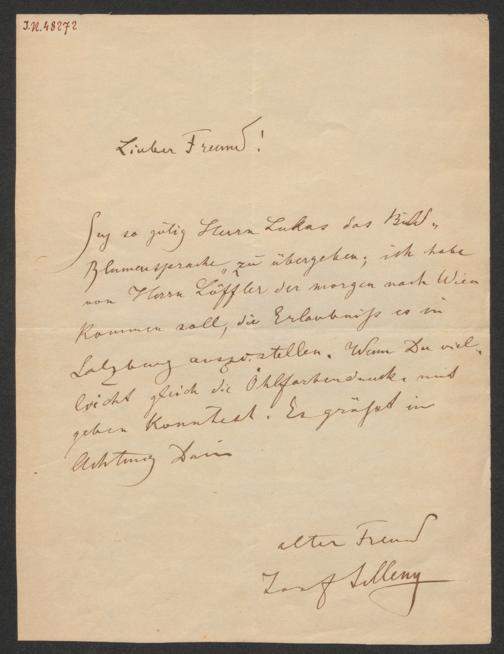 I.N.48272
Lieber Freund!
Sey so gütig Herrn Lukas das Bild „
Blumensprache" zu übergeben; ich habe
von Herrn Löffler der morgen nach Wien
kommen soll, die Erlaubniß es in
Salzburg auszustellen. Wenn Du viel-
leicht gleich die Öhlfarbendrucke mit
geben konntest. Es grüßt in
Achtung Dein
alter Freund
Josef Selleny